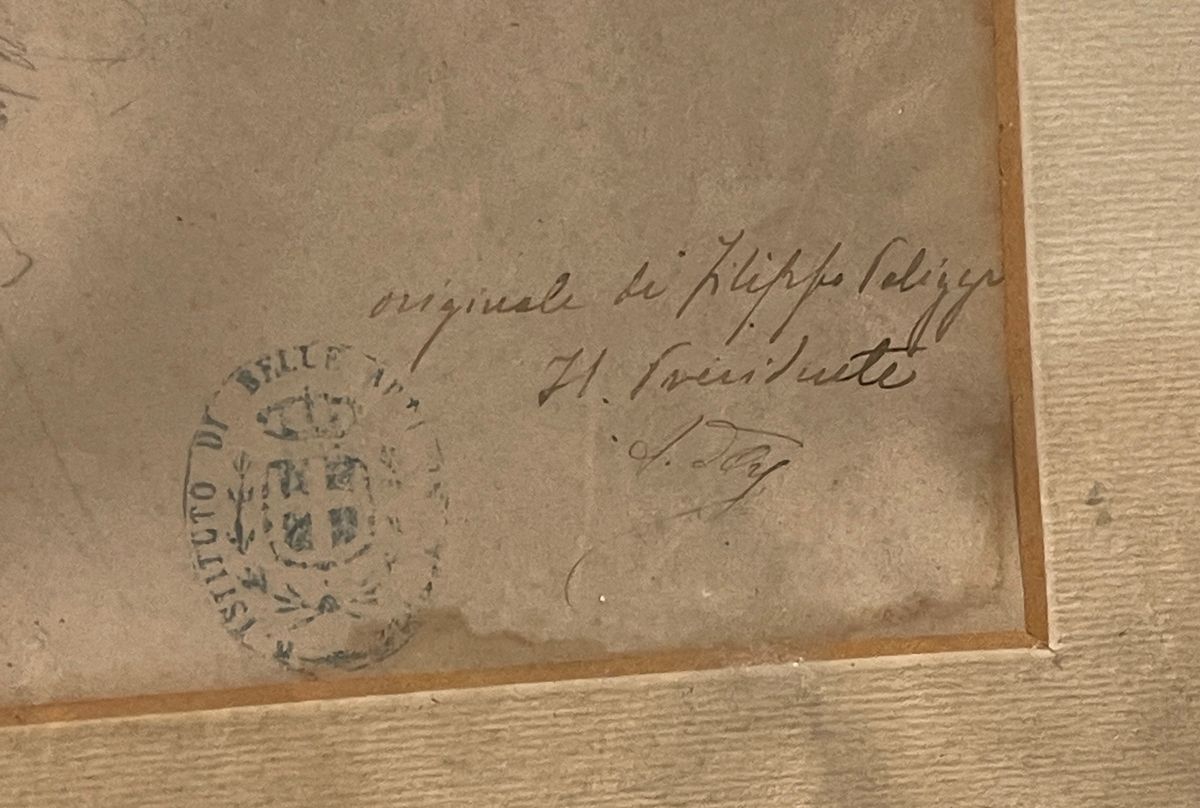 originale di Filippo Palizzi
Il Presidente
ISTITUTO DI BELLE ARTI